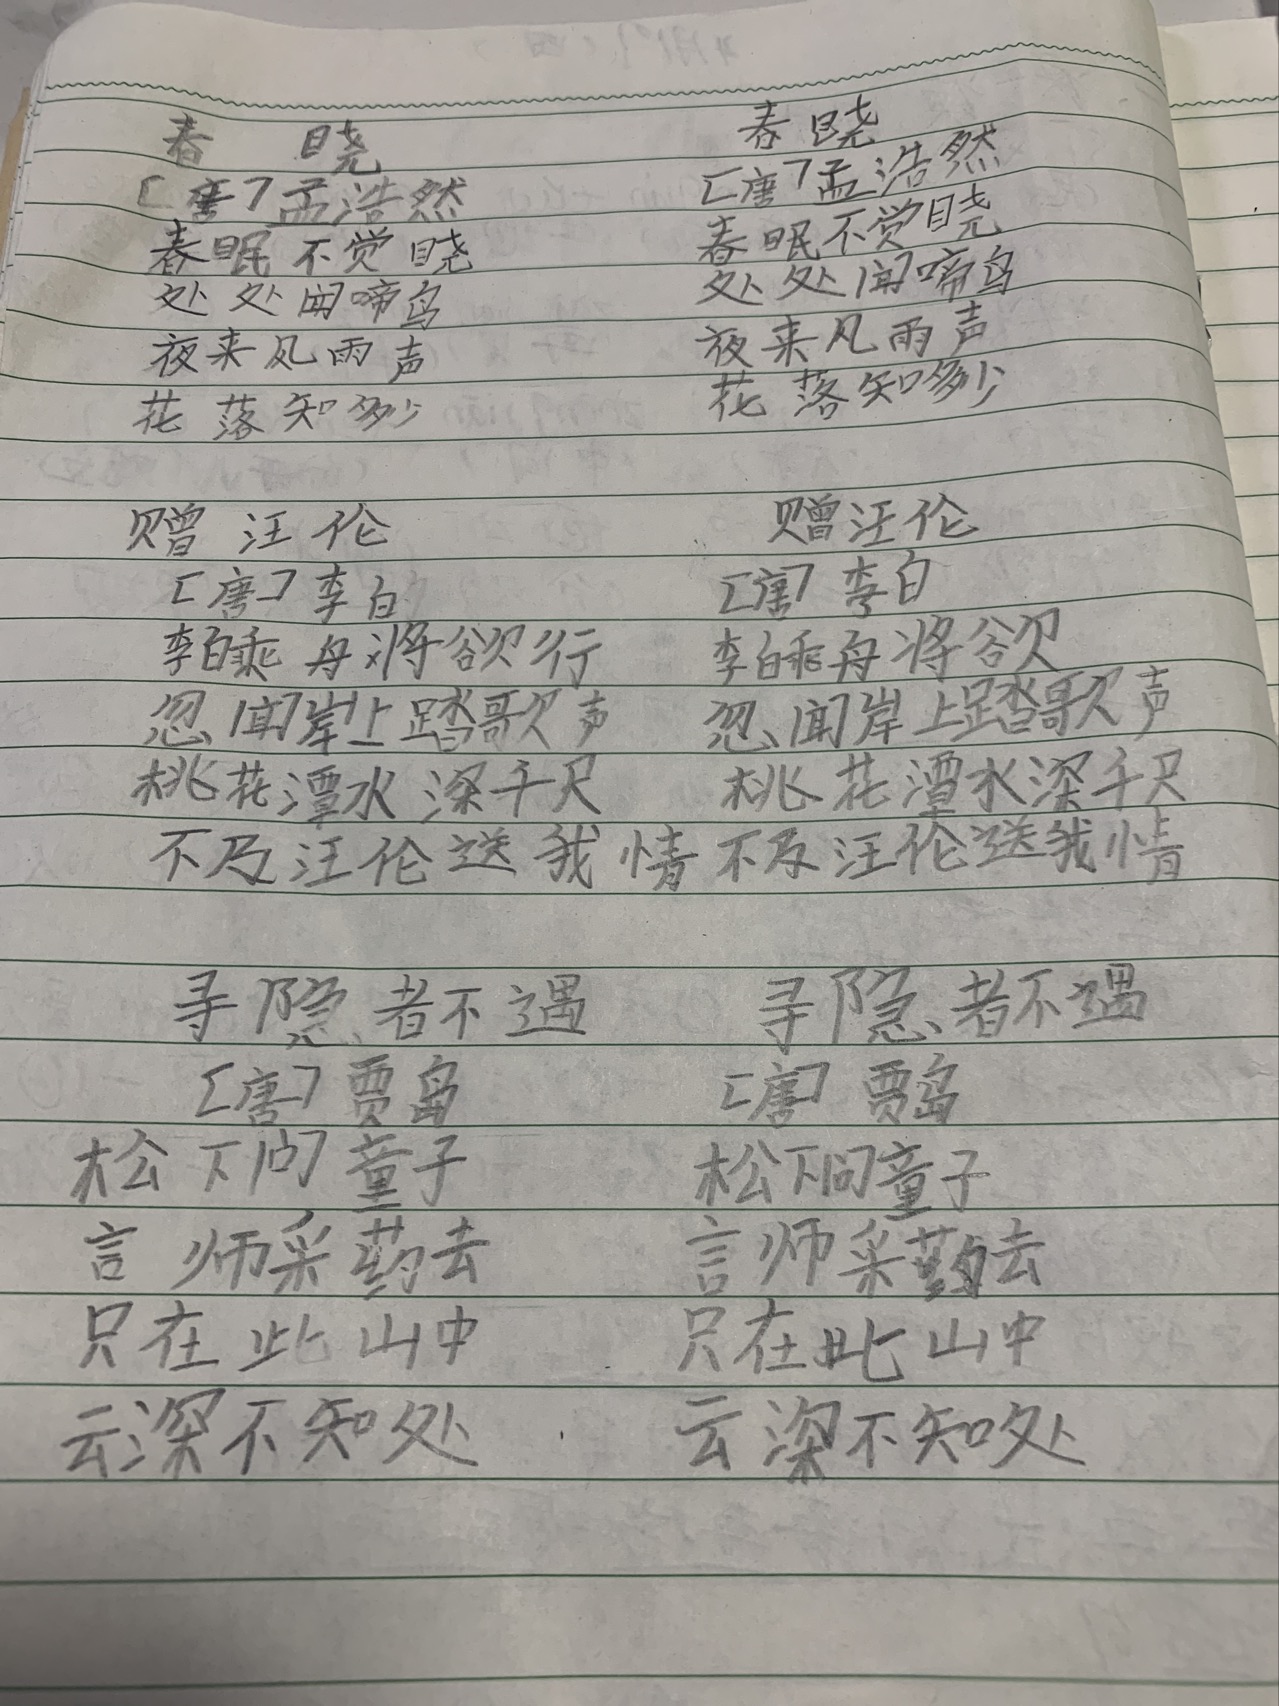 春 晓
[唐]孟浩然
春眠不觉晓
处处闻啼鸟
夜来风雨声
花落知多少
春晓
[唐]孟浩然
春眠不觉晓
处处闻啼鸟
夜来风雨声
花落知多少
赠汪伦
[唐]李白
李白乘舟将欲行
忽闻岸上踏歌声
桃花潭水深千尺
不及汪伦送我情
赠汪伦
[唐]李白
李白乘舟将欲
忽闻岸上踏歌声
桃花潭水深千尺
不及汪伦送我情
寻隐者不遇
[唐]贾岛
松下问童子
言师采药去
只在此山中
云深不知处
寻隐者不遇
[唐]贾岛
松下问童子
言师采药去
只在此山中
云深不知处